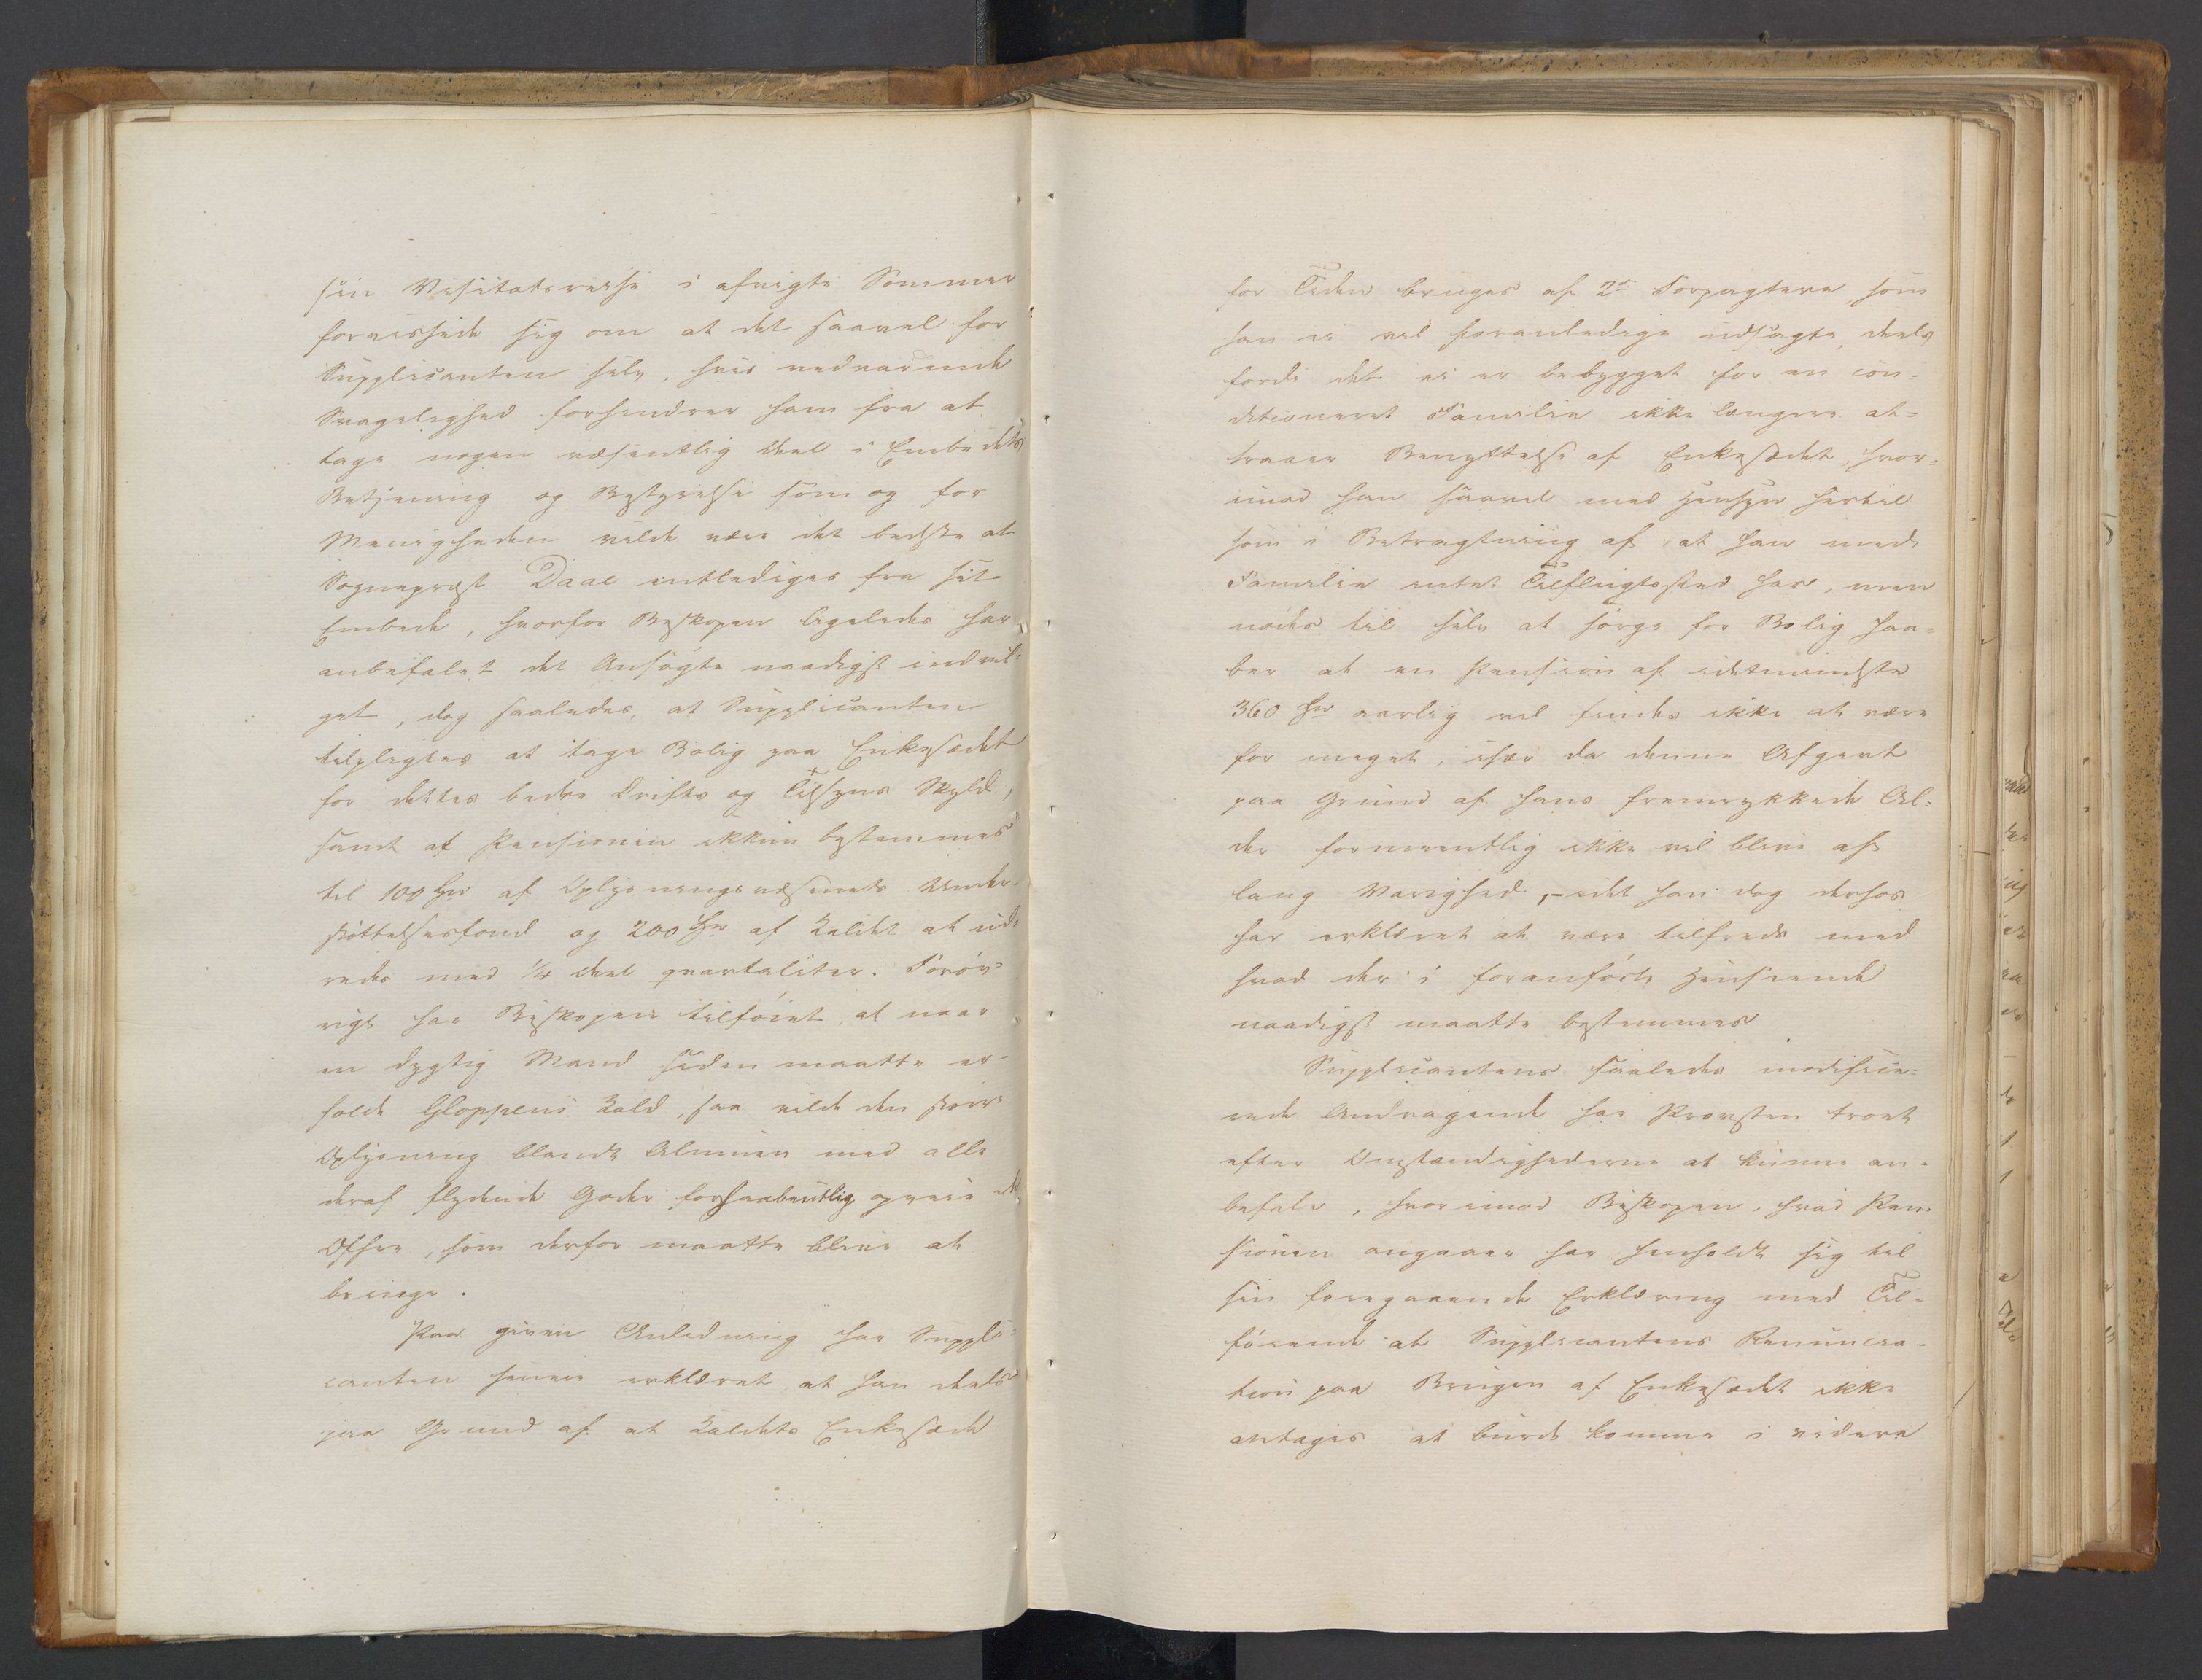 sin Visitatsreise i afvigte Sommer
forvissede sig om at det saavel for
Supplicanten selv, hvis vedvarende
Svagelighed forhindrer ham fra at
tage nogen væsentlig Deel i Embedets
Betjening og Bestyrelse som og for
Menigheden vilde være det bedste at
Sognepræst Daae entlediges fra sit
Embede, hvorfor Biskopen ligeledes har
anbefalet det Ansøgte naadigst indvil-
get, dog saaledes, at Supplicanten
tilpligtes at tage Bolig paa Enkesædet
for dettes bedre Drifts og Tilsyns Skyld,
samt at Pensionen ikkun bestemmes
til 100 Spd af Oplysningsvæsenets Under-
støttelsesfond og 200 Spd af Kaldet at ud-
redes med 1/4 Deel qvartaliter. Forøv-
rigt har Biskopen tilføiet, at naar
en dygtig Mand siden maatte er-
holde Gloppens Kald, saa vilde den større
Oplysning blandt Almuen med alle
deraf flydende Goder forhaabentlig opveie de
Offre, som derfor maatte blive at
bringe.
Paa given Anledning har Suppli-
canten senere erklæret at han deels
paa Grund af at Kaldets Enkesæde
for Tiden bruges af 2de Forpagtere som
han ei vil foranledige udsagte, deels
fordi det ei er bebygget for en con-
ditioneret Familie ikke længere at-
traaer Benyttelse af Enkesædet, hvor-
imod han saavel med Hensyn hertil
som i Betragtning af at han med
Familie intet Tilflugtssted har, men
nødes til selv at sørge for Bolig haa-
ber at en Pension af idetmindste
360 Spd aarlig vil findes ikke at være
for meget, især da denne Afgivt
paa Grund af hans fremrykkede Al-
der formeentlig ikke vil blive af
lang Varighed, - idet han dog derhos
har erklæret at være tilfreds med
hvad der i foranførte Henseende
naadigst maatte bestemmes
Supplicantens saaledes modifice-
rede Andragende har Provsten troet
efter Omstændighederne at kunne an-
befale, hvorimod Biskopen, hvad Pen-
sionen angaaer har henholdt sig til
sin foregaaende Erklæring med Til-
føiende at Supplicantens Renuncia-
tion paa Brugen af Enkesædet ikke
antages at burde komme i videre